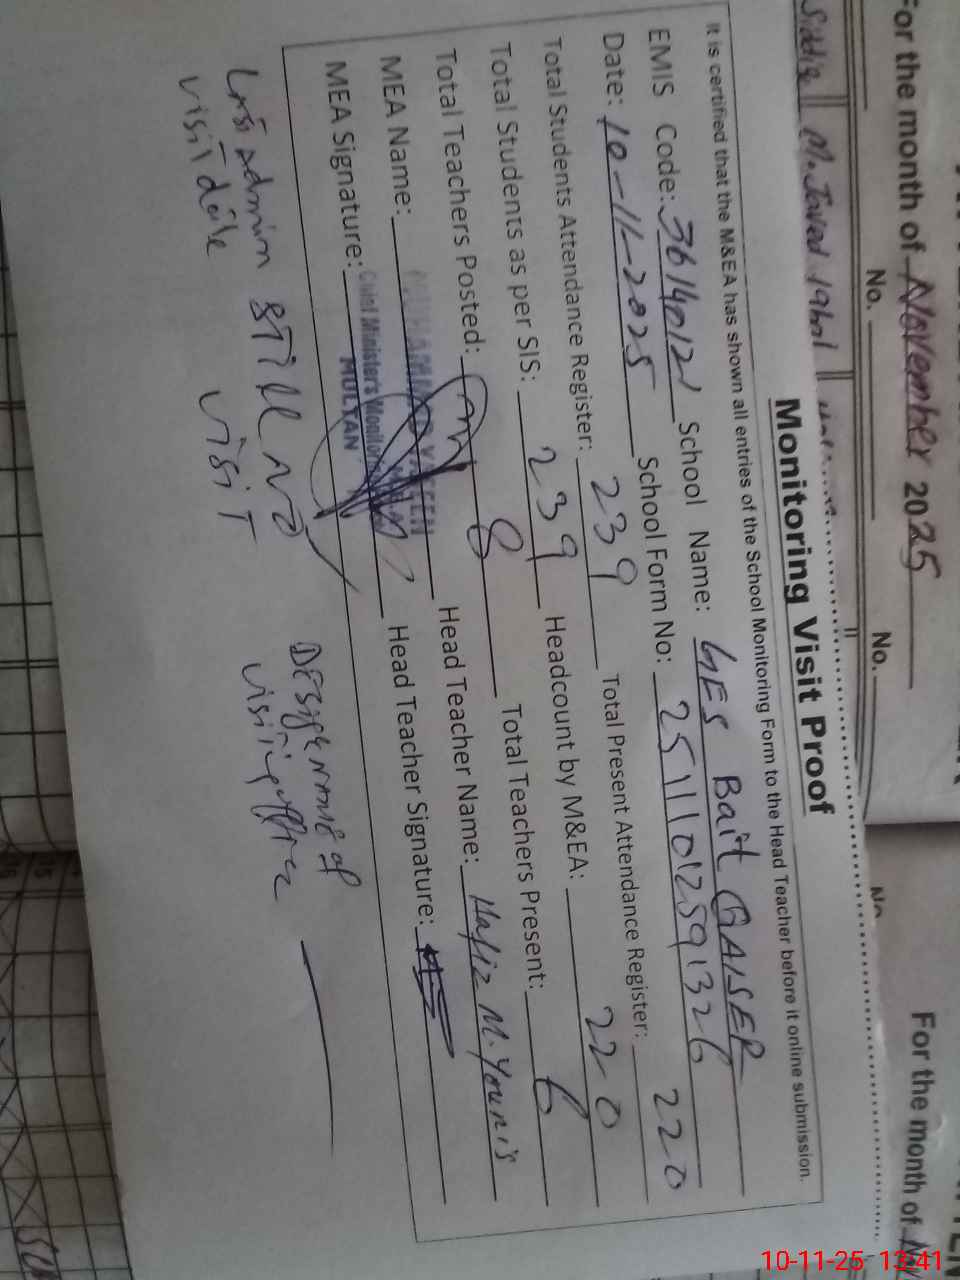 For the month of November 2025
No. No.
Siddiq M. Javed Iqbal
Monitoring Visit Proof
It is certified that the M&EA has shown all entries of the School Monitoring Form to the Head Teacher before it online submission.
EMIS Code: 3614012 School Name: GES Bait QAISER
Date: 10-11-2025 School Form No: 2511012591326
Total Students Attendance Register: 239 Total Present Attendance Register: 220
Total Students as per SIS: 239 Headcount by M&EA: 220
Total Teachers Posted: 8 Total Teachers Present: 6
MEA Name: Head Teacher Name: Hafiz M. Younis
MEA Signature: Head Teacher Signature:
YASEEN
Chief Minister's Monitoring
MULTAN
Last admin still no Design name of
visit date visit visiting officer
No
For the month of Nov
15
16
10-11-25 13:41